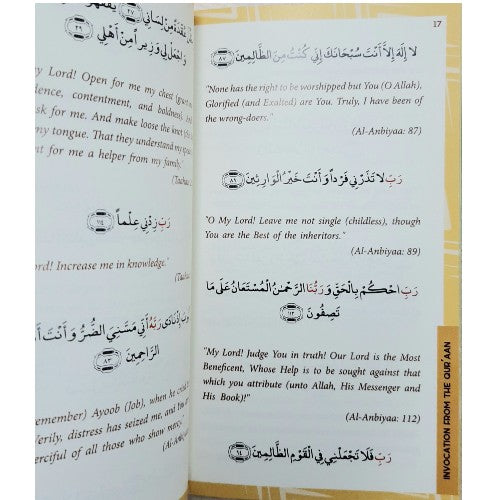 عُقْدَةً مِّن لِّسَانِي ٢٧
وَاجْعَل لِّي وَزِيراً مِّنْ أَهْلِي ٢٩
My Lord! Open for me my chest
contentment, and boldness). And
ask for me. And make loose the knot
my tongue. That they understand my
nt for me a helper from my family."
رَبِّ زِدْنِي عِلْماً ١١٤
Lord! Increase me in knowledge."
إِذْ نَادَىٰ رَبَّهُ أَنِّي مَسَّنِيَ الضُّرُّ وَأَنْتَ
الرَّاحِمِينَ ٨٣
emember) Ayoob (Job), when he
Verily, distress has seized me, and
erciful of all those who show
17
لَا إِلَٰهَ إِلَّا أَنْتَ سُبْحَانَكَ إِنِّي كُنْتُ مِنَ الظَّالِمِينَ ٨٧
"None has the right to be worshipped but You (O Allah),
Glorified (and Exalted) are You. Truly, I have been of
the wrong-doers."
(Al-Anbiyaa: 87)
رَبِّ لَا تَذَرْنِي فَرْداً وَأَنْتَ خَيْرُ الْوَارِثِينَ ٨٩
"O My Lord! Leave me not single (childless), though
You are the Best of the inheritors."
(Al-Anbiyaa: 89)
رَبِّ احْكُمْ بِالْحَقِّ وَرَبُّنَا الرَّحْمَٰنُ الْمُسْتَعَانُ عَلَىٰ مَا
تَصِفُونَ ١١٢
"My Lord! Judge You in truth! Our Lord is the Most
Beneficent, Whose Help is to be sought against that
which you attribute (unto Allah, His Messenger and
His Book)!"
(Al-Anbiyaa: 112)
رَبِّ فَلَا تَجْعَلْنِي فِي الْقَوْمِ الظَّالِمِينَ ٩٤
INVOCATION FROM THE QUR'AAN